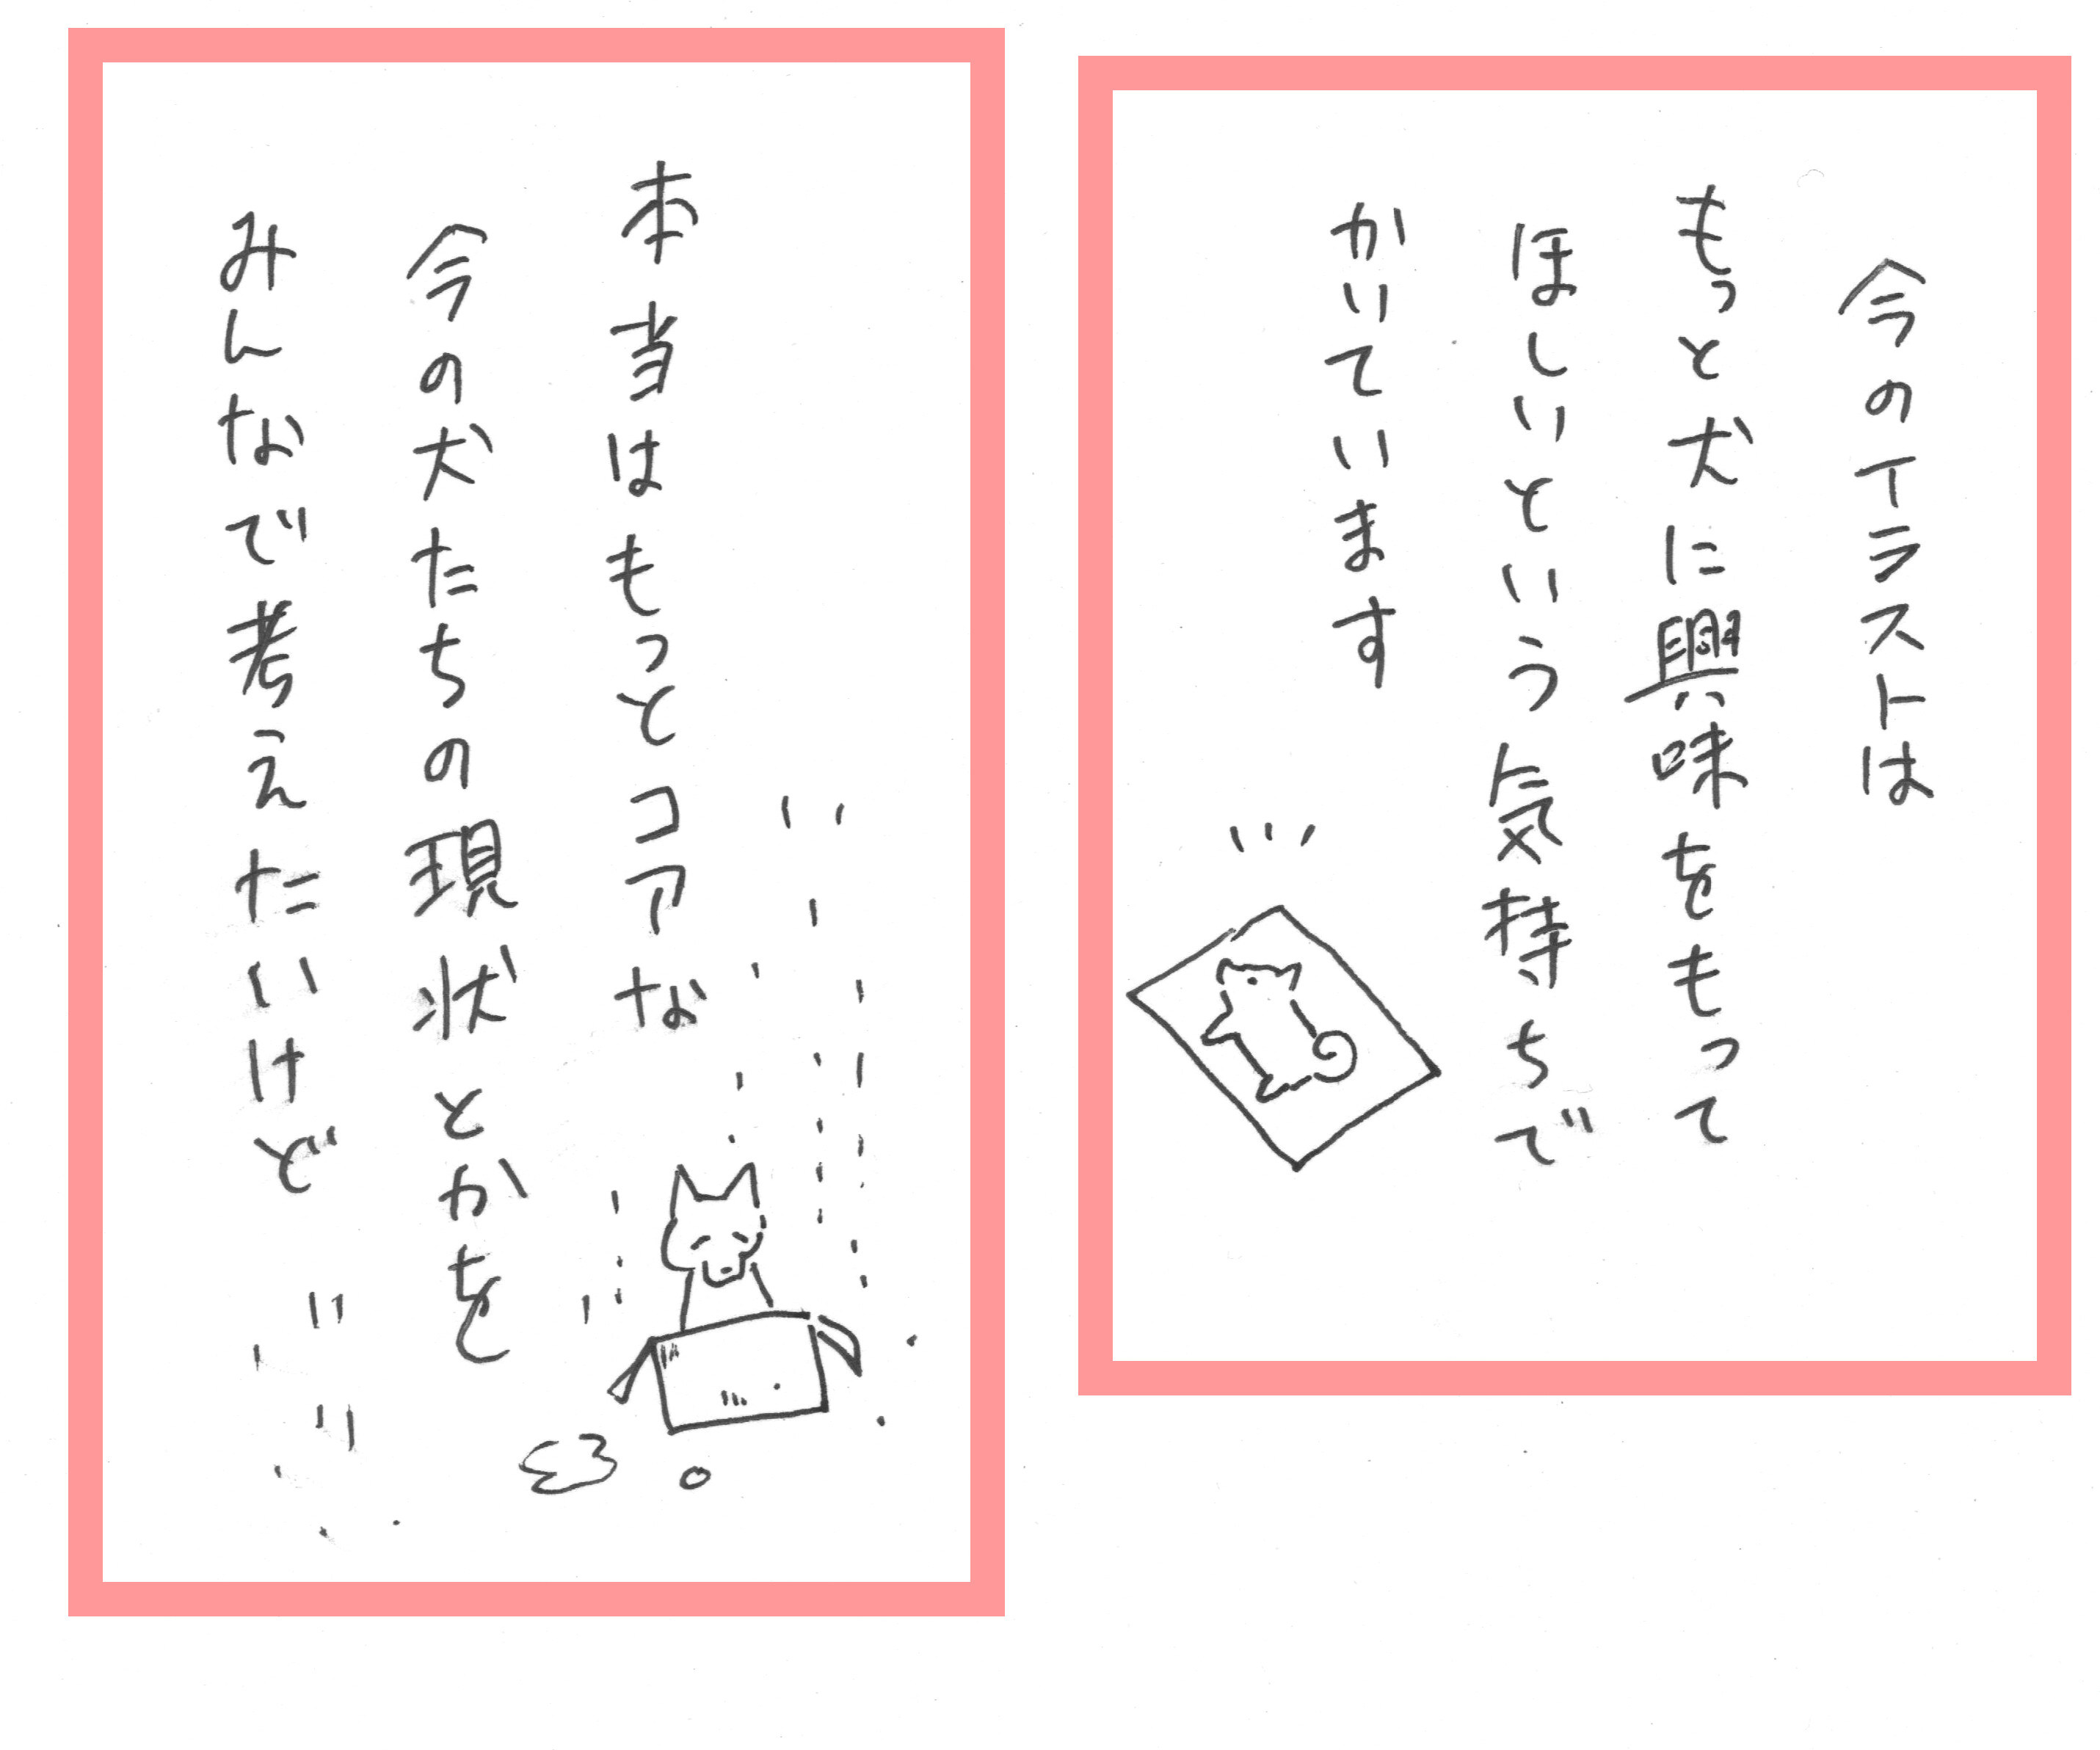 今のイラストは
もっと犬に興味をもって
ほしいという気持ちで
かいています
本当はもっとコアな
今の犬たちの現状とかを
みんなで考えたいけど